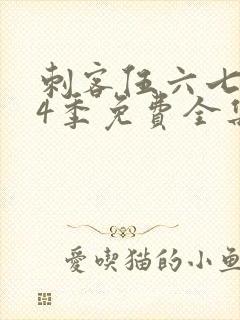 刺客伍六七
4季免費全集
愛喫猫的小魚